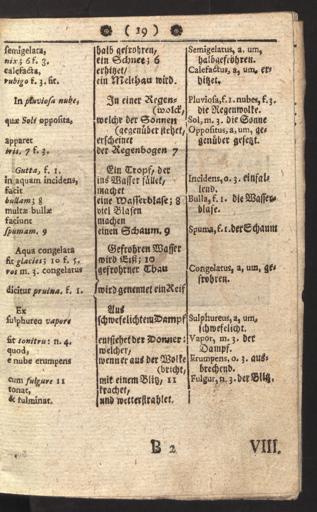 ( 19 )
semigelata,
nix; 6 f. 3.
calefacta,
rubigo f. 3. fit.
In pluviosa nube,
quæ Soli opposita,
apparet
iris, 7 f. 3.
Gutta, f. 1.
in aquam incidens,
facit
bullam; 8
multæ bullæ
faciunt
spumam. 9
Aqua congelata
fit glacies; 10 f. 5.
ros m. 3. congelatus
dicitur pruina. f. 1.
Ex
sulphureo vapore
fit tonitru: n. 4.
quod,
e nube erumpens
cum fulgure 11
tonat,
& fulminat.
halb gefrohren,
ein Schnee; 6
erhitzet/
ein Melthau wird.
In einer Regen-
(wolck,
welche der Sonnen
(gegenüber stehet,
erscheinet
der Regenbogen 7
Ein Tropf, der
ins Wasser fället,
machet
eine Wasserblase; 8
viel Blasen
machen
einen Schaum. 9
Gefrohren Wasser
wird Eiß; 10
gefrohrner Thau
wird genennet ein Reif
Aus
schwefelichten Dampf
entstehet der Donner:
welcher,
wenn er aus der Wolke
(bricht,
mit einem Blitz, 11
krachet,
und wetterstrahlet.
Semigelatus, a, um,
halbgefrohren.
Calefactus, a, um, er-
hitzet.
Pluviosa, f. 1. nubes, f. 3.
die Regenwolke.
Sol, m. 3. die Sonne
Oppositus, a, um, ge-
genüber gesetzt.
Incidens, o. 3. einfal-
lend.
Bulla, f. 1. die Wasser-
blase.
Spuma, f. 1. der Schaum
Congelatus, a, um, ge-
frohren.
Sulphureus, a, um,
schwefelicht.
Vapor, m. 3. der
Dampf.
Erumpens, o. 3. aus-
brechend.
Fulgur, n. 3. der Blitz.
B 2
VIII.